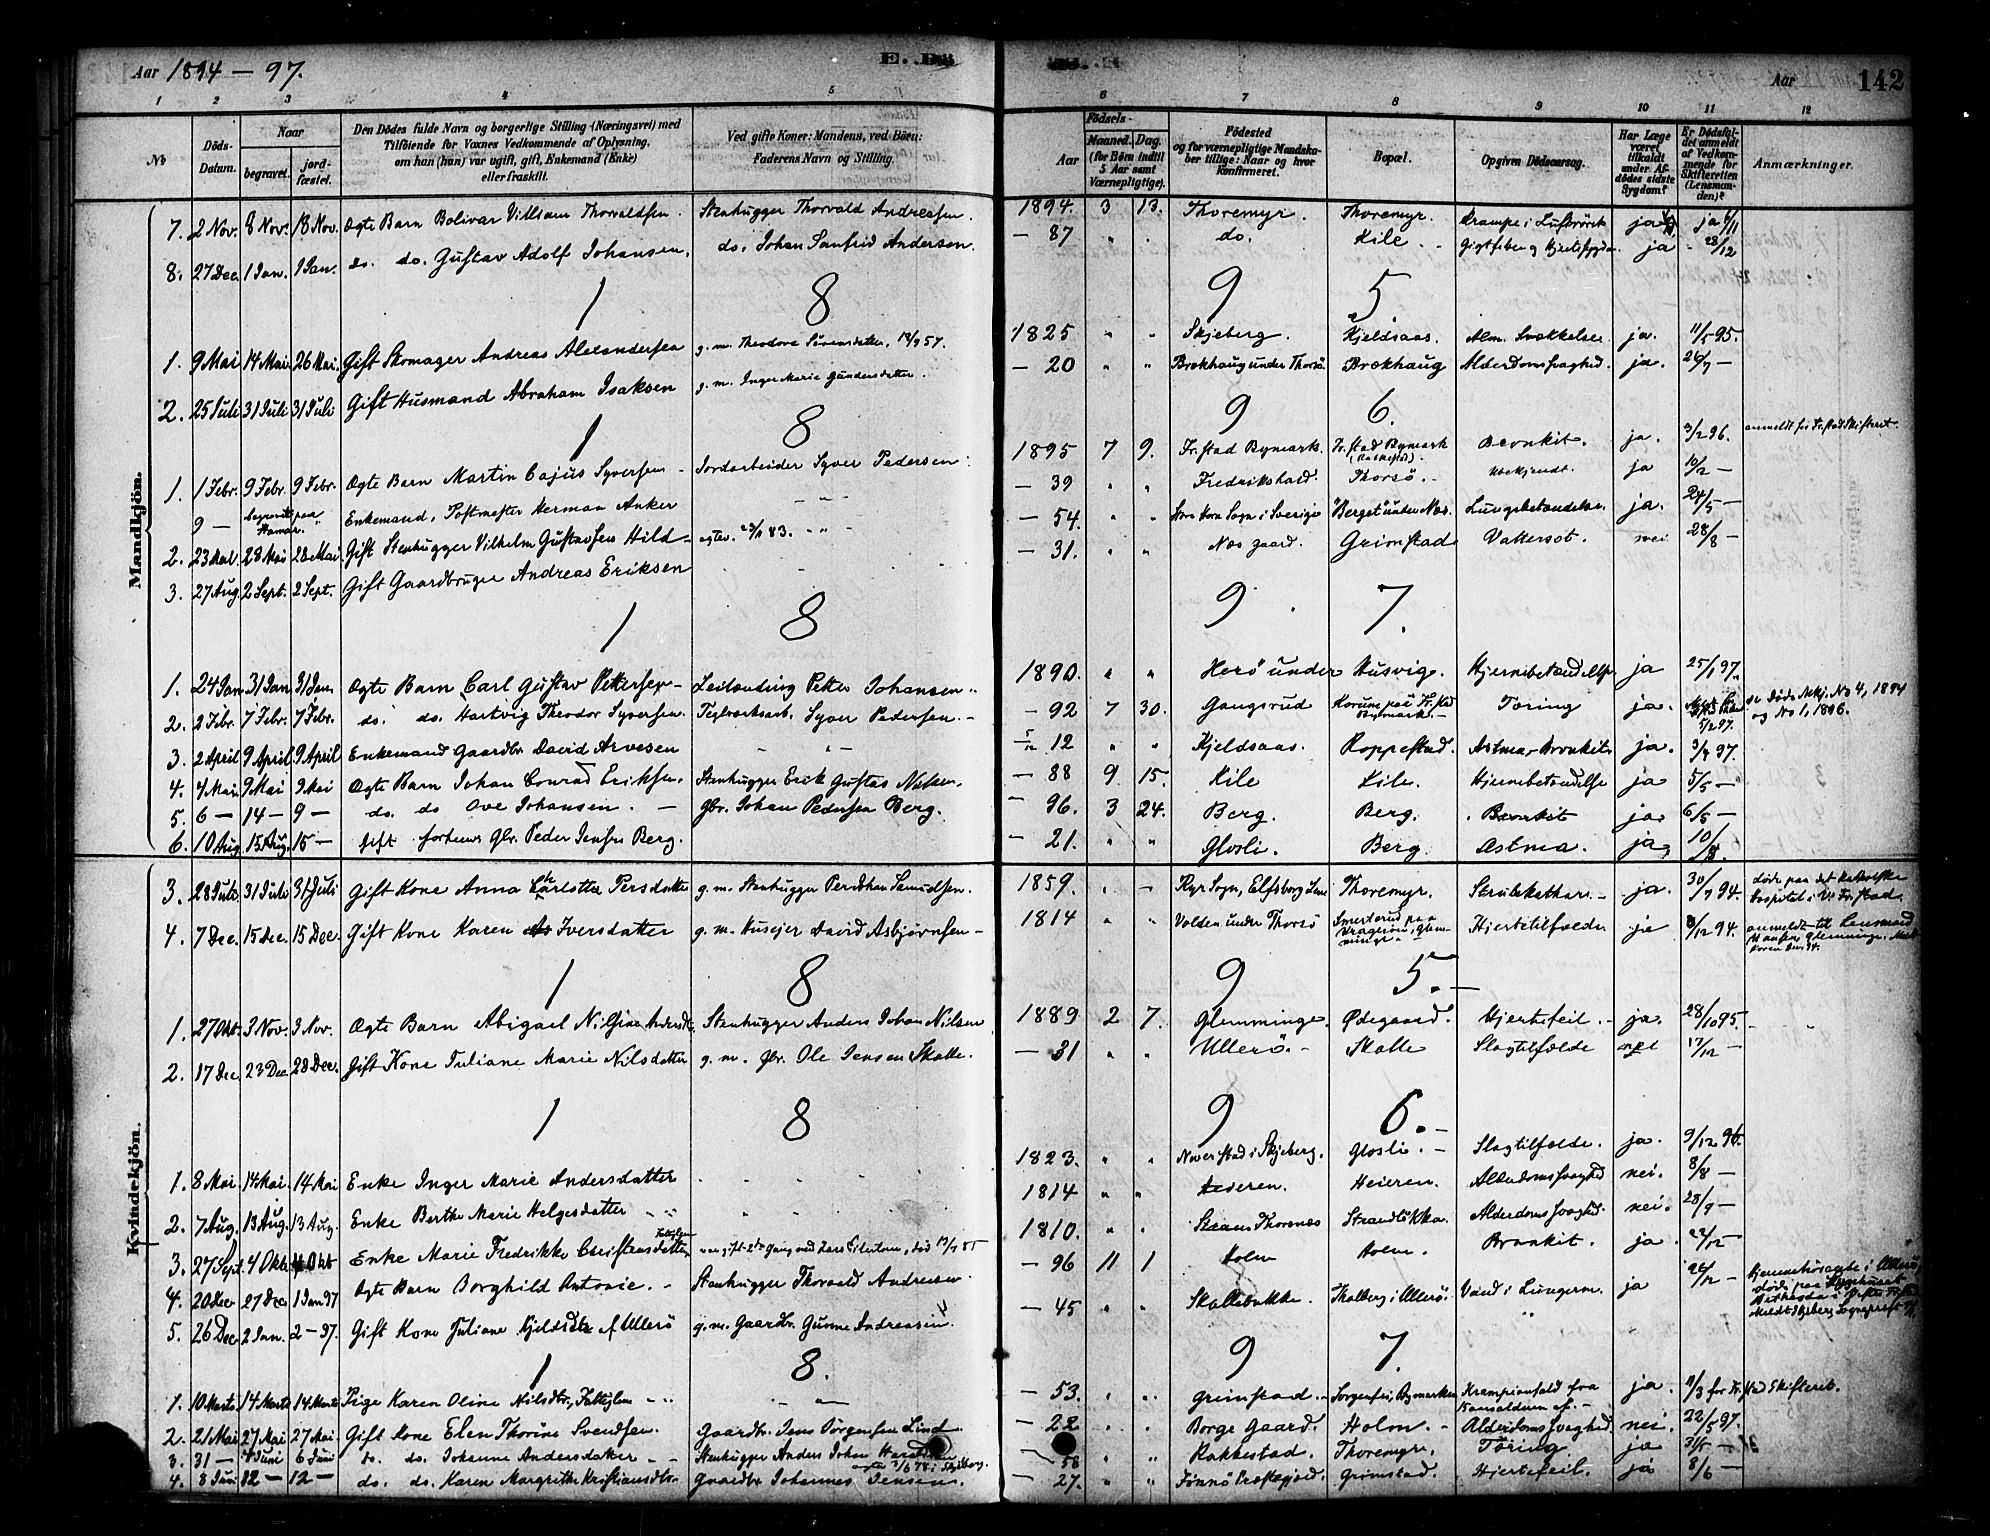 Aar 1894 — 97. E. Dö
Aar 142
1 2 3 4 5 6 7 8 9 10 11 12
No Döds-Datum. Naar begravet. jord-fæstet. Den Dödes fulde Navn og borgerlige Stilling (Næringsvei) med Tilföiende for Voxnes Vedkommende af Oplysning, om han (hun) var ugift, gift, Enkemand (Enke) eller fraskilt. Ved gifte Koner: Mandens, ved Börn: Faderens Navn og Stilling. Födsels- Aar Maaned. Dag. (for Börn indtil 5 Aar samt Værnepligtige). Födested og for værnepligtige Mandskaber tillige: Naar og hvor Konfirmeret. Bopæl. Opgiven Dödsaarsag. Har Læge været tilkaldt under Afdödes sidste Sygdom? Er Dödsfaldet anmeldt af Vedkommende for Skifteretten (Lensmanden)? Anmærkninger.
Mandkjön.
7. 2 Nov. 8 Nov. 18 Nov. Ægte Barn Bolivar Villiam Thorvaldsen. Stenhugger Thorvald Andreasen. 1894. 3 13. Thoremyr. Thoremyr. Krampe i Luftröret ja ja 6/11
8. 27 Dec. 1 Jan. 1 Jan. do. do. Gustav Adolf Johansen. do. Johan Sanfrid Andersen. — 87 " " do. Kile. Gigtfeber og Hjertesygdom ja - 28/12
1 8 9 5
1. 9 Mai 14 Mai 26 Mai. Gift Skomager Andreas Alexandersen g. m. Theodora Sörensdatter, 1825 " " Skjeberg. Kjeldsaas. Alm. Svækkelse. ja. 11/5 95.
2. 25 Juli 31 Juli 31 Juli Gift Husmand Abraham Isaksen g. m. Inger Marie Gundersdatter. — 20 " " Brækhaug under Thorsö. Brækhaug Alderdomssvaghed. ja. 26/7 —
1 8 9 6.
1. 1 Febr. 9 Febr. 9 Febr. Ægte Barn Martin Cajus Syversen — Jordarbeider Syver Pedersen. 1895 7 9. Fr.stad Bymark. Fr.stad Bymark Bronkit. ja. 3/2 96. anmeldt for Fr.stad Skifteret.
9 — begravet paa Hamar. Enkemand, Postmester Herman Anker — " — — 39 " " Fredrikshald. Thorsö. — ubekjendt. ja 10/2 —
2. 23 Mai. 28 Mai 28 Mai. Gift Stenhugger Vilhelm Gustavsen Hild — — 54. " " Sogn i Sverige Berget under Næs. Lungebetændelse. ja. 24/5 —
3. 27 Aug. 2 Sept. 2 Sept. Gift Gaardbruger Andreas Eriksen — 31. " " Næs gaard. Grimstad Vattersot. nei 28/8 —
1 8 9 7.
1. 24 Jan 31 Jan 31 Jan Ægte Barn Carl Gustav Pettersen — Leilænding Petter Johansen. 1890. " " Herö under Husvig. Hjernebetændelse ja 25/1 97.
2. 2 Febr. 7 Febr. 7 Febr. do. do. Hartvig Theodor Syversen. Teglværksarb. Syver Pedersen. — — 92 7 30. Gangsrud Korum paa Fr.stad Bymark. — Tæring ja. 5/2 97. se Döde Mkj. No 4, 1894 og No 1, 1896.
3. 2 April 9 April 9 April Enkemand Gaardbr. David Arvesen — " — 12 " " Kjeldsaas. Roppestad. Astma, Bronkit. ja. 3/4 97.
4. 4 Mai 9 Mai 9 Mai Ægte Barn Johan Conrad Eriksen. Stenhugger Erik Gustav Nilsen. — 88 9 15. Kile Kile. Hjernebetændelse ja 5/5 —
5. 6 — 14 — 9 — do. do Ove Johansen. — Gbr. Johan Pedersen Berg. — 96. 3 24. Berg. Berg. Bronkit ja. 6/5 —
6. 10 Aug 15 Aug. 15 — gift forhenv. Gbr. Peder Jensen Berg. — 21. " " Glosli. Berg. Astma. ja. 10/8.
Kvindekjön.
3. 28 Juli 31 Juli 31 Juli Gift Kone Anna Charlotte Persdatter g. m. Stenhugger Per Johan Samuelsen. 1859. " — Ryr Sogn, Elfsborg Len Thoremyr. — ja. 30/7 94. döde paa det katholske Hospital i Fr.stad.
4. 7 Dec. 15 Dec. 15 Dec. Gift Kone Karen Iversdatter g. m. Husejer David Asbjörnsen — 1814 " " Volden under Thorsö Smertu paa Hjertetilfælde ja 8/12 94. anmeldt til Lensmand Hansen, Glemminge.
1 8 9 5. —
1. 27 Okt. 3 Nov. 3 Nov. Ægte Barn Abigael Nilsine Andersdtr. Stenhugger Anders Johan Nilsen 1889 2 7. Glemminge. Ødegaard. Hjertefeil. — ja. 28/10 95.
2. 17 Dec 23 Dec 28 Dec. Gift Kone Juliane Marie Nilsdatter g. m. Gbr. Ole Jensen Skalle. — 31 " " Ullerö. — Skalle Slagtilfælde nei 17/12 —
1 8 9 6. —
1. 8 Mai. 14 Mai. 14 Mai Enke Inger Marie Andersdatter 1823. " " Navestad i Skjeberg. Glosli. — Slagtilfælde. ja. 9/12 96.
2. 7 Aug. 13 Aug. 13 Aug. Enke Berthe Marie Helgesdatter 1814 " " Hederen. Heieren. Alderdomssvaghed nei. 8/8 —
3. 27 Sept. 4 Okt. 4 Okt Enke Marie Fredrikke Christensdatter var gift 2den gang med Lars 1810. " " Thorsnæs Strandlökka. Alderdomssvaghed. nei. 28/9 —
4. 20 Dec 27 Dec 1 Jan 97 Ægte Barn Borghild Antonie. — Stenhugger Thorvald Andreasen. — 96 11 1 Holm Holm. Bronkit. ja. 22/12
5. 26 Dec 2 Jan. 2 — 97. Gift Kone Juliane Kjeldsdtr. af Ullerö g. m. Gaardbr. Gunne Andreasen. — 45 " " Skallebakke. Thalberg i Ullerö. Vand i Lungerne. ja 26/12 — hjemmehörende i Ullerö, döde paa Sygehuset
1 8. 9 7.
1. 10 Marts 14 Marts 14 Marts Pige Karen Oline Nilsdtr., Fattiglem — " — — 53. " " Grimstad. — Sorgenfri, Bymarken Krampeanfald ja. 11/3 for Fr.stad Skifteret.
2. 21 Mai 27 Mai 27 Mai. Gift Kone Elen Thorine Svendsen. Gaardbr. Jens Jörgensen Lind — 22 " " Borge Gaard. Holm. — Alderdomssvaghed. nei. 22/5 97.
3. 31 — 4 Juni 6 Juni do. do. Johanne Andersdatter — Stenhugger Anders Johan — 58 " " Rakkestad. Thoremyr. Tæring. ja 31/5 —
4. 8 Juni 12 — 12 — do. do. Karen Margrethe Kristiansdtr. Gaardbr. Johannes Jensen. — 27. " " Præstegjæld. Grimstad. Hjertefeil. ja 8/6 —